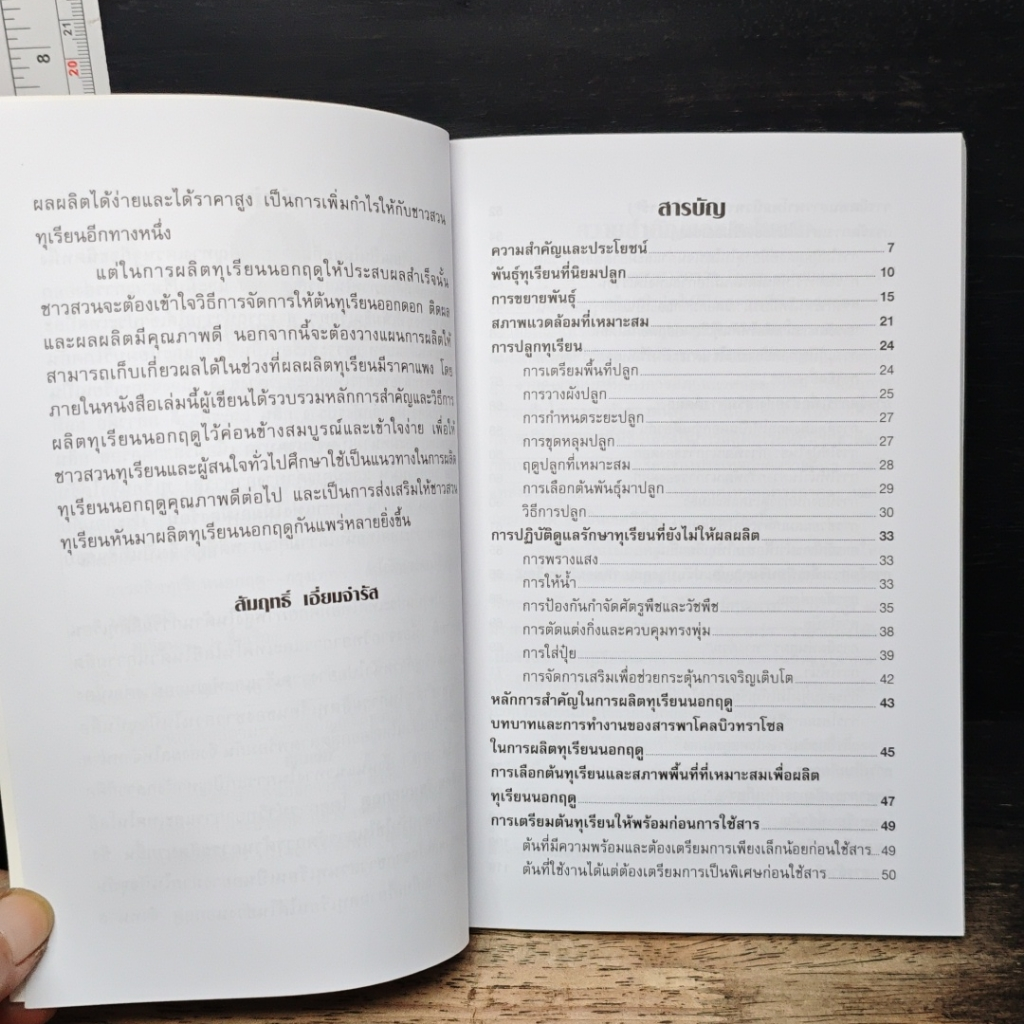 8
21
20
ผลผลิตได้ง่ายและได้ราคาสูง เป็นการเพิ่มกำไรให้กับชาวสวน
ทุเรียนอีกทางหนึ่ง
แต่ในการผลิตทุเรียนนอกฤดูให้ประสบผลสำเร็จนั้น
ชาวสวนจะต้องเข้าใจวิธีการจัดการให้ต้นทุเรียนออกดอก ติดผล
และผลผลิตมีคุณภาพดี นอกจากนี้จะต้องวางแผนการผลิตให้
สามารถเก็บเกี่ยวผลได้ในช่วงที่ผลผลิตทุเรียนมีราคาแพง โดย
ภายในหนังสือเล่มนี้ผู้เขียนได้รวบรวมหลักการสำคัญและวิธีการ
ผลิตทุเรียนนอกฤดูไว้ค่อนข้างสมบูรณ์และเข้าใจง่าย เพื่อให้
ชาวสวนทุเรียนและผู้สนใจทั่วไปศึกษาใช้เป็นแนวทางในการผลิต
ทุเรียนนอกฤดูคุณภาพดีต่อไป และเป็นการส่งเสริมให้ชาวสวน
ทุเรียนหันมาผลิตทุเรียนนอกฤดูกันแพร่หลายยิ่งขึ้น
สัมฤทธิ์ เอี่ยมจำรัส
สารบัญ
ความสำคัญและประโยชน์ 7
พันธุ์ทุเรียนที่นิยมปลูก 10
การขยายพันธุ์ 15
สภาพแวดล้อมที่เหมาะสม 21
การปลูกทุเรียน 24
การเตรียมพื้นที่ปลูก 24
การวางผังปลูก 25
การกำหนดระยะปลูก 27
การขุดหลุมปลูก 27
ฤดูปลูกที่เหมาะสม 28
การเลือกต้นพันธุ์มาปลูก 29
วิธีการปลูก 30
การปฏิบัติดูแลรักษาทุเรียนที่ยังไม่ให้ผลผลิต 33
การพรางแสง 33
การให้น้ำ 33
การป้องกันกำจัดศัตรูพืชและวัชพืช 35
การตัดแต่งกิ่งและควบคุมทรงพุ่ม 38
การใส่ปุ๋ย 39
การจัดการเสริมเพื่อช่วยกระตุ้นการเจริญเติบโต 42
หลักการสำคัญในการผลิตทุเรียนนอกฤดู 43
บทบาทและการทำงานของสารพาโคลบิวทราโซล
ในการผลิตทุเรียนนอกฤดู 45
การเลือกต้นทุเรียนและสภาพพื้นที่ที่เหมาะสมเพื่อผลิต
ทุเรียนนอกฤดู 47
การเตรียมต้นทุเรียนให้พร้อมก่อนการใช้สาร 49
ต้นที่มีความพร้อมและต้องเตรียมการเพียงเล็กน้อยก่อนใช้สาร 49
ต้นที่ใช้งานได้แต่ต้องเตรียมการเป็นพิเศษก่อนใช้สาร 50